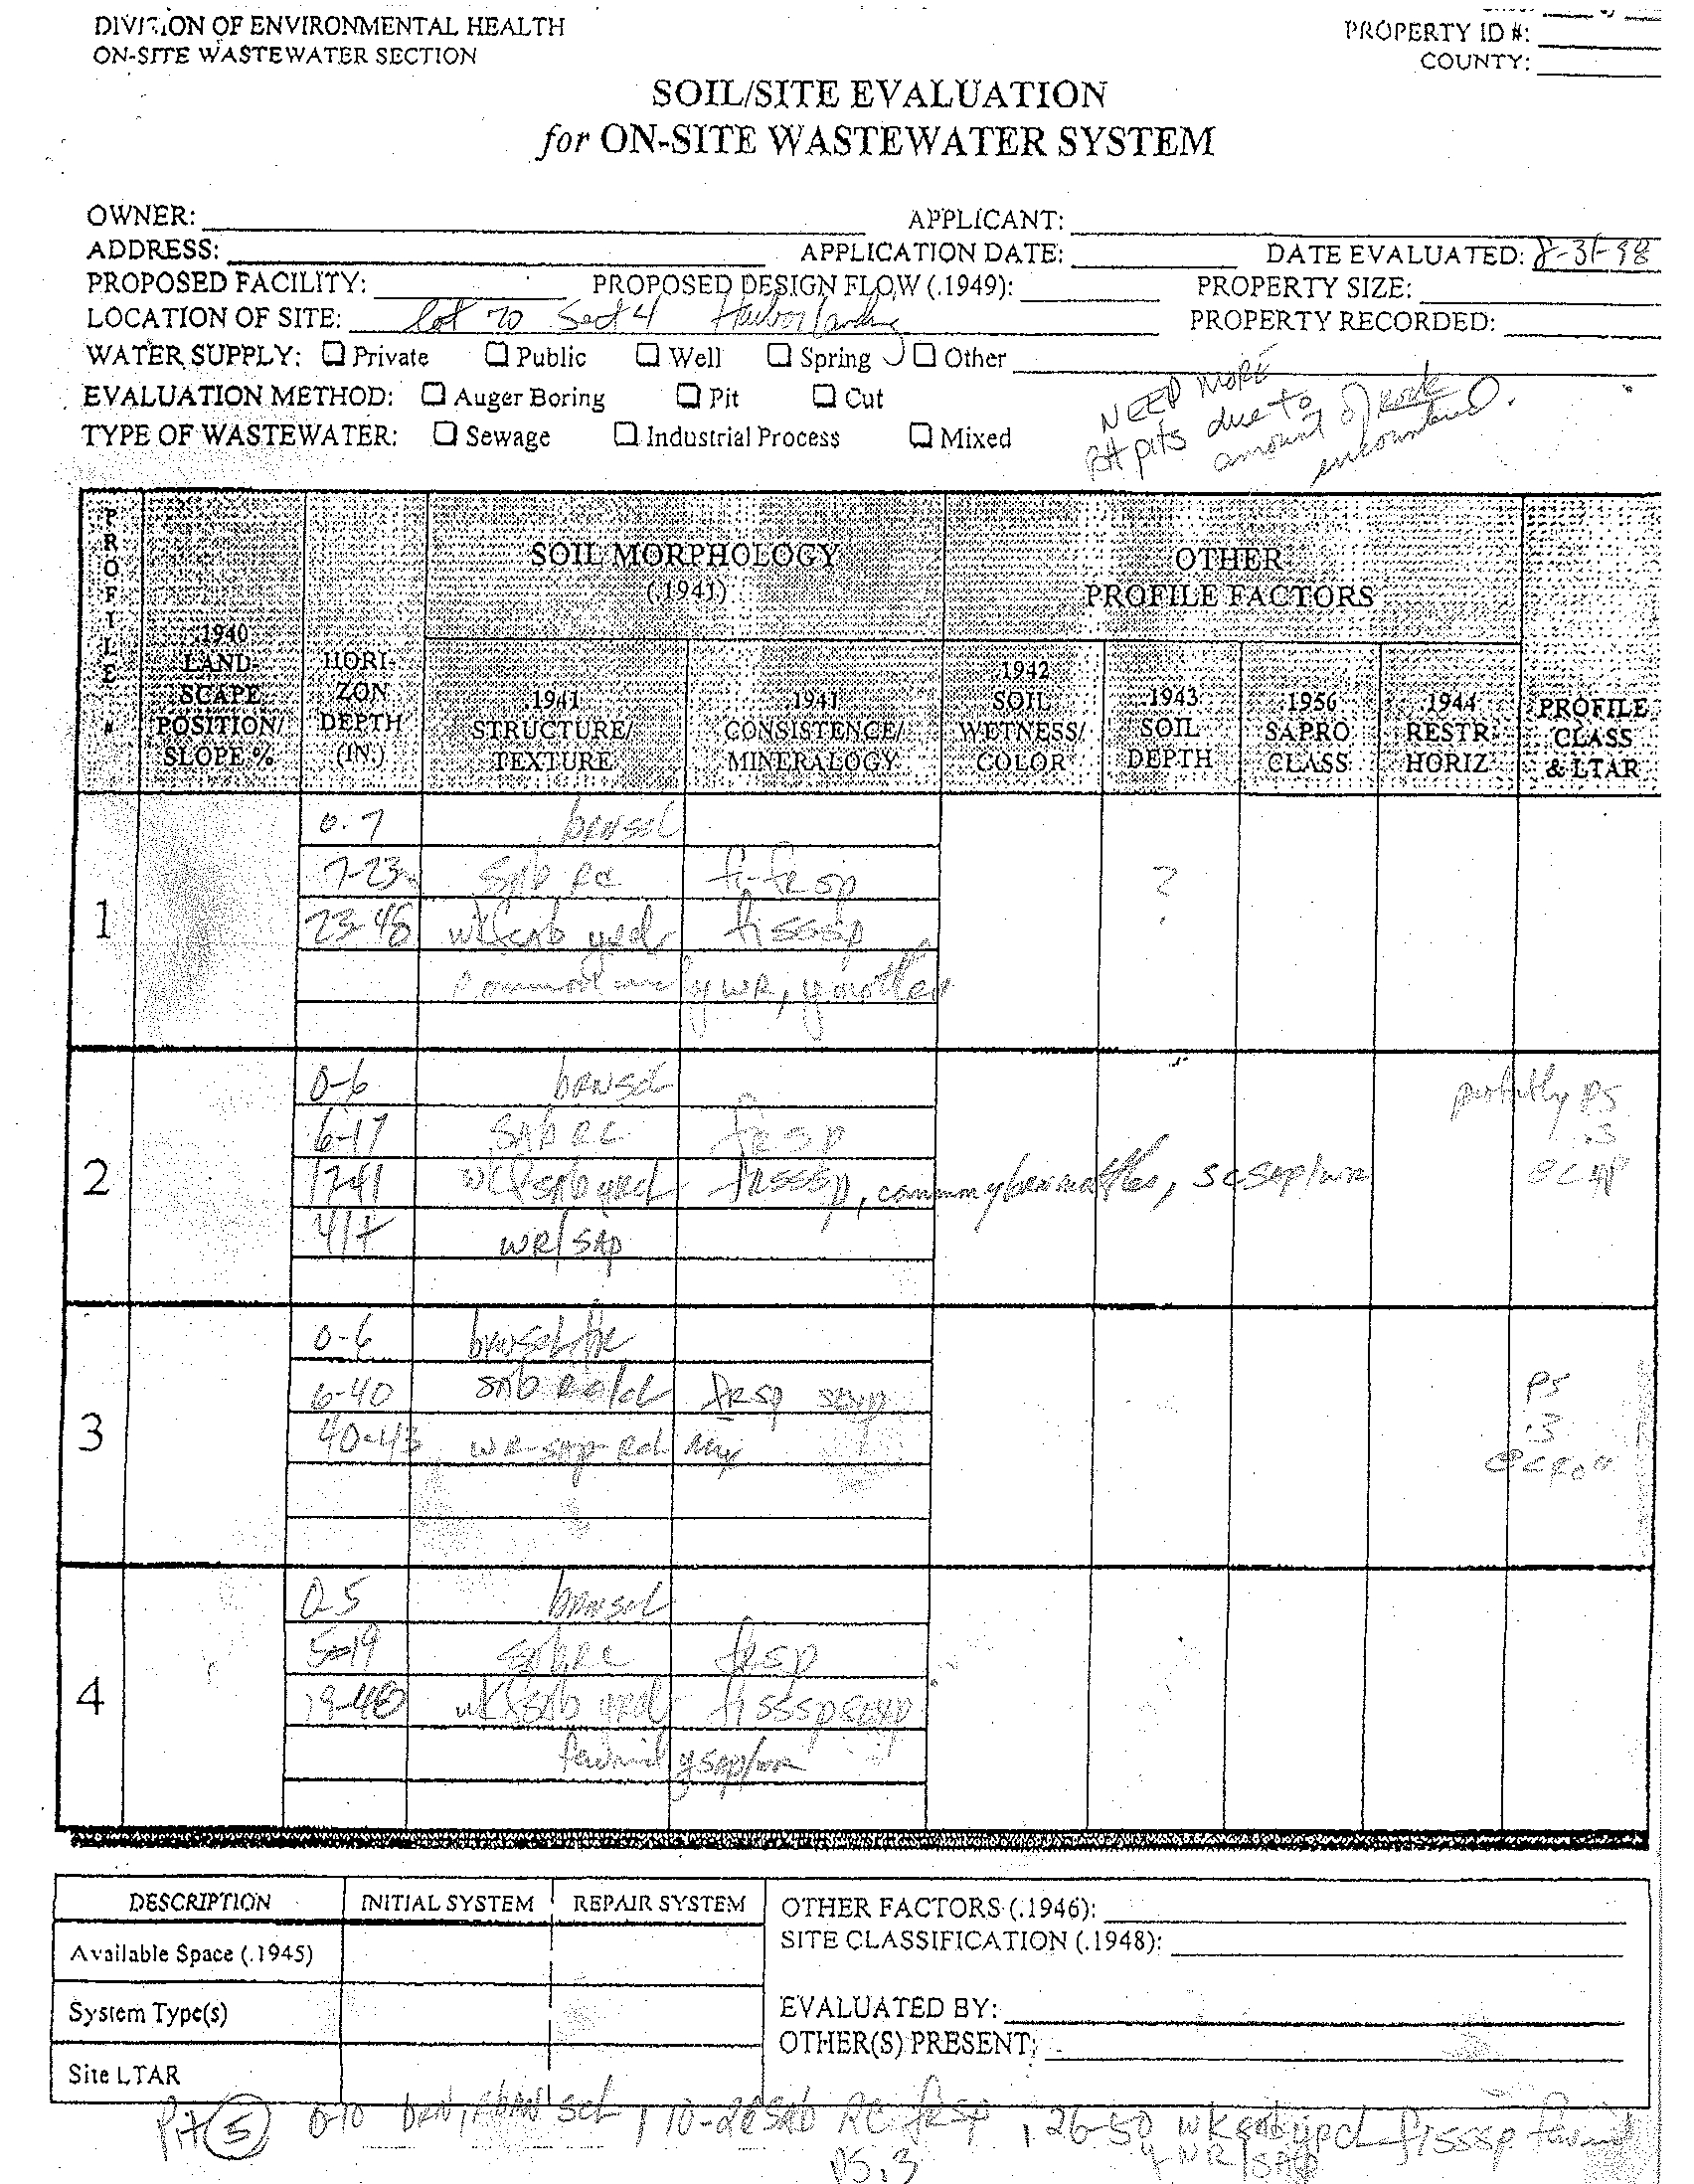 DIVISION OF ENVIRONMENTAL HEALTH
ON-SITE WASTEWATER SECTION
PROPERTY ID #:
COUNTY:
SOIL/SITE EVALUATION
for ON-SITE WASTEWATER SYSTEM
OWNER: APPLICANT:
ADDRESS: APPLICATION DATE: DATE EVALUATED: 8-31-98
PROPOSED FACILITY: PROPOSED DESIGN FLOW (.1949): PROPERTY SIZE:
LOCATION OF SITE: Lot 70 Sect 4 Harbor Landing PROPERTY RECORDED:
WATER SUPPLY: Private Public Well Spring Other
EVALUATION METHOD: Auger Boring Pit Cut
TYPE OF WASTEWATER: Sewage Industrial Process Mixed
NEED MORE
pits due to
amount of rock
encountered.
PROFILE #
.1940 LAND-SCAPE POSITION/ SLOPE %
HORI-ZON DEPTH (IN.)
SOIL MORPHOLOGY
(.1941)
.1941 STRUCTURE/ TEXTURE
.1941 CONSISTENCE/ MINERALOGY
OTHER
PROFILE FACTORS
.1942 SOIL WETNESS/ COLOR
.1943 SOIL DEPTH
.1956 SAPRO CLASS
.1944 RESTR HORIZ
PROFILE CLASS & LTAR
1
0-7 brnscl
7-23 SAB RC fi-fr sp ?
23-48 wksab yrcl fisssp
common yWR, y mottles
2
0-6 brnscl
6-17 SAB RC frsp
17-41 wksab yrcl frsssp, common y brn mottles, sc sap/wr
41+ WR/SAP
probably PS
.3
3
0-6 brnscl
6-40 SAB Rc/cl frsp sexp
40-43 WR-sap-Rcl mix
PS
.3
4
0-5 brnscl
5-19 SABRC frsp
19-48 wksab yrcl fisssp sexp
few y sap/wr
DESCRIPTION INITIAL SYSTEM REPAIR SYSTEM
Available Space (.1945)
System Type(s)
Site LTAR
OTHER FACTORS (.1946):
SITE CLASSIFICATION (.1948):
EVALUATED BY:
OTHER(S) PRESENT:
Pit 5 0-10 brn, scl, 10-26 SAB RC frsp, 26-50 wksab yrcl fisssp
PS .3 y WR/SAP